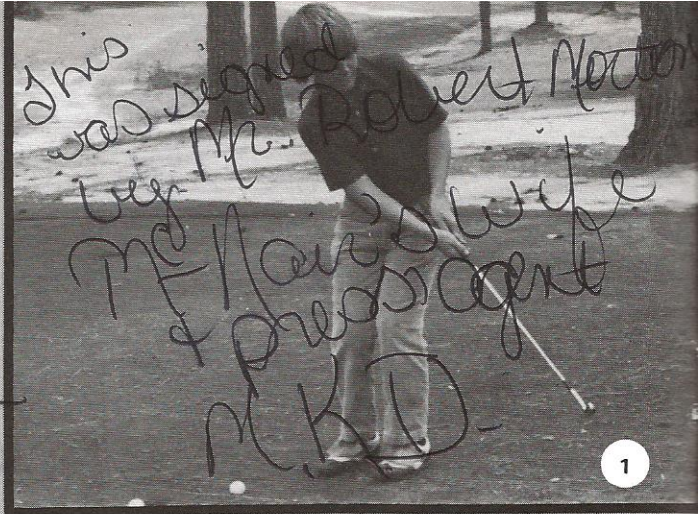 This
was signed
by Mr. Robert Morton
McNair's wife
& press agent
M.K.D.
1